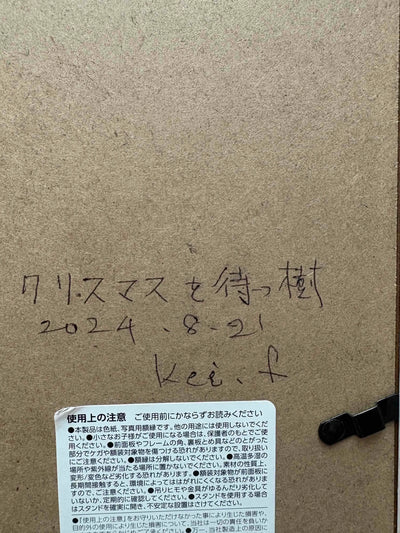 クリスマスを待つ樹
2024.8.21
kei.f
使用上の注意 ご使用前にかならずお読みください
●本製品は色紙、写真用額縁です。他の用途には使用しないでくだ
さい。●小さなお子様がご使用になる場合は、保護者のもとでご使
用ください。●前面板やフレームの角、裏板とめ具などのとがった
部分でケガや額装対象物を傷つける恐れがありますので、取り扱い
にご注意ください。●額縁は分解しないでください。●高温多湿の
場所や紫外線が当たる場所に置かないでください。素材の性質上、
変形/変色など劣化する恐れがあります。●額装対象物を前面板に
長期間接触すると、環境によってははがれにくくなる恐れがありま
すので、ご注意ください。●吊りヒモや金具がゆるんだり劣化して
いないか、定期的に確認してください。●スタンドを使用する場合
はスタンドを確実に開き、不安定な設置はさけてください。
●「使用上の注意」をお守りいただけなかった事により生じた損害や、
目的外使用により生じた損害について、当社は一切の責任を負いか
●万一、当社製造上の原因に